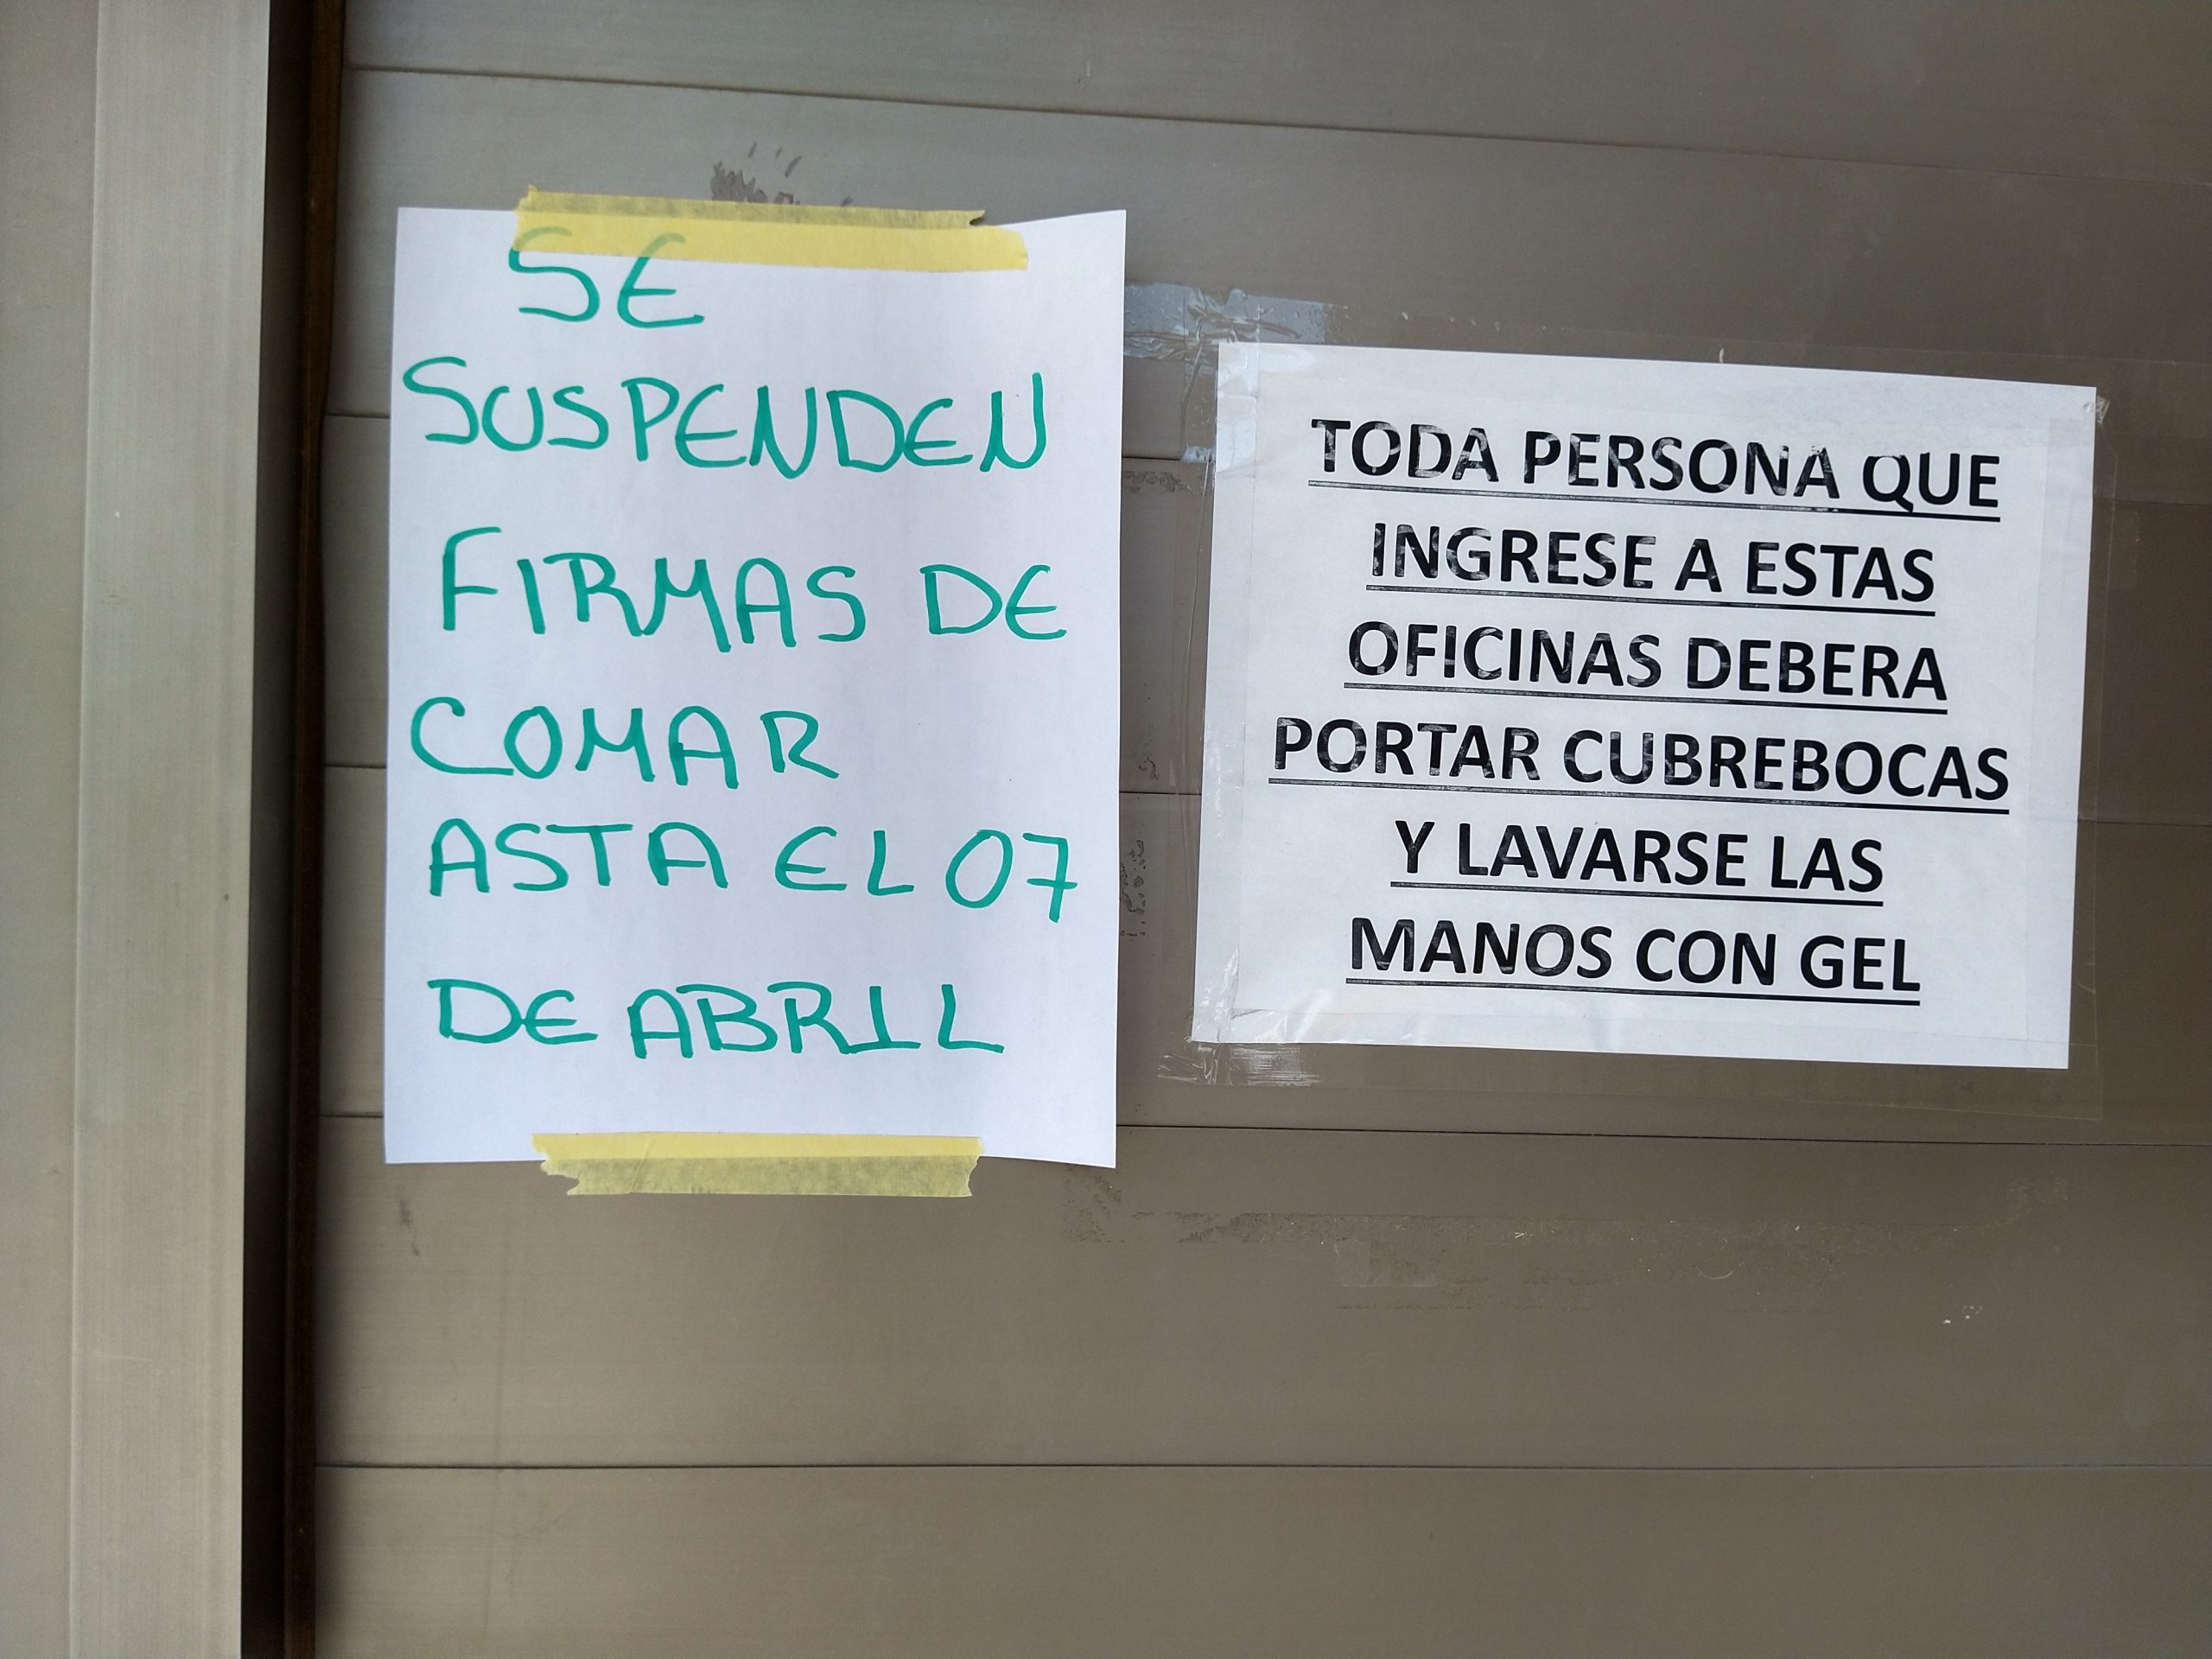 SE
SUSPENDEN
FIRMAS DE
COMAR
ASTA EL 07
DE ABRIL
TODA PERSONA QUE
INGRESE A ESTAS
OFICINAS DEBERA
PORTAR CUBREBOCAS
Y LAVARSE LAS
MANOS CON GEL